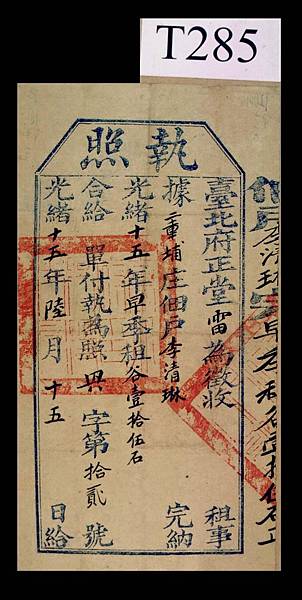 T285
執照
李清琳完早季租谷壹拾伍石正
臺北府正堂雷為徵收租事
據二重埔庄佃戶李清琳完納
光緒十五年早季租谷壹拾伍石
合給單付執為照興字第拾貳號
光緒十五年陸月十五日給